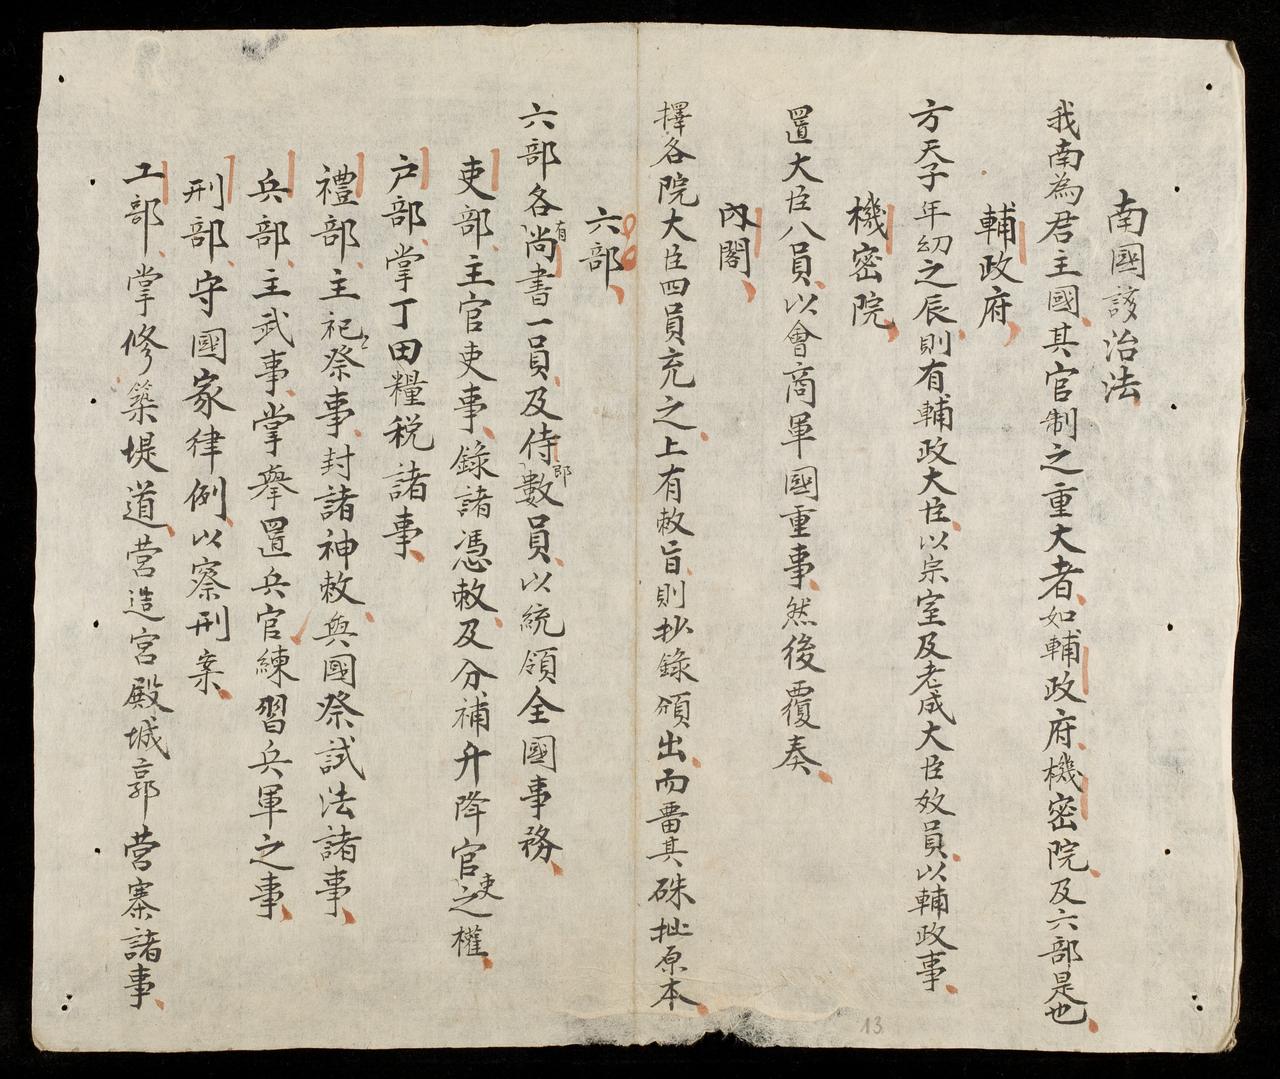 南國該治法
我南為君主國其官制之重大者如輔政府機密院及六部是也
輔政府
方天子年幼之辰則有輔政大臣以宗室及老成大臣效員以輔政事
機密院
置大臣八員以會商軍國重事然後覆奏
內閣
擇各院大臣四員充之上有敕旨則抄錄頒出而畱其硃批原本
六部
六部各有尚書一員及侍郎數員以統領全國事務
吏部主官吏事錄諸憑敕及分補升降官吏之權
户部掌丁田糧稅諸事
禮部主祀祭事封諸神敕與國祭試法諸事
兵部主武事掌舉置兵官練習兵軍之事
刑部守國家律例以察刑案
工部掌修築堤道营造宮殿城郭营寨諸事
13